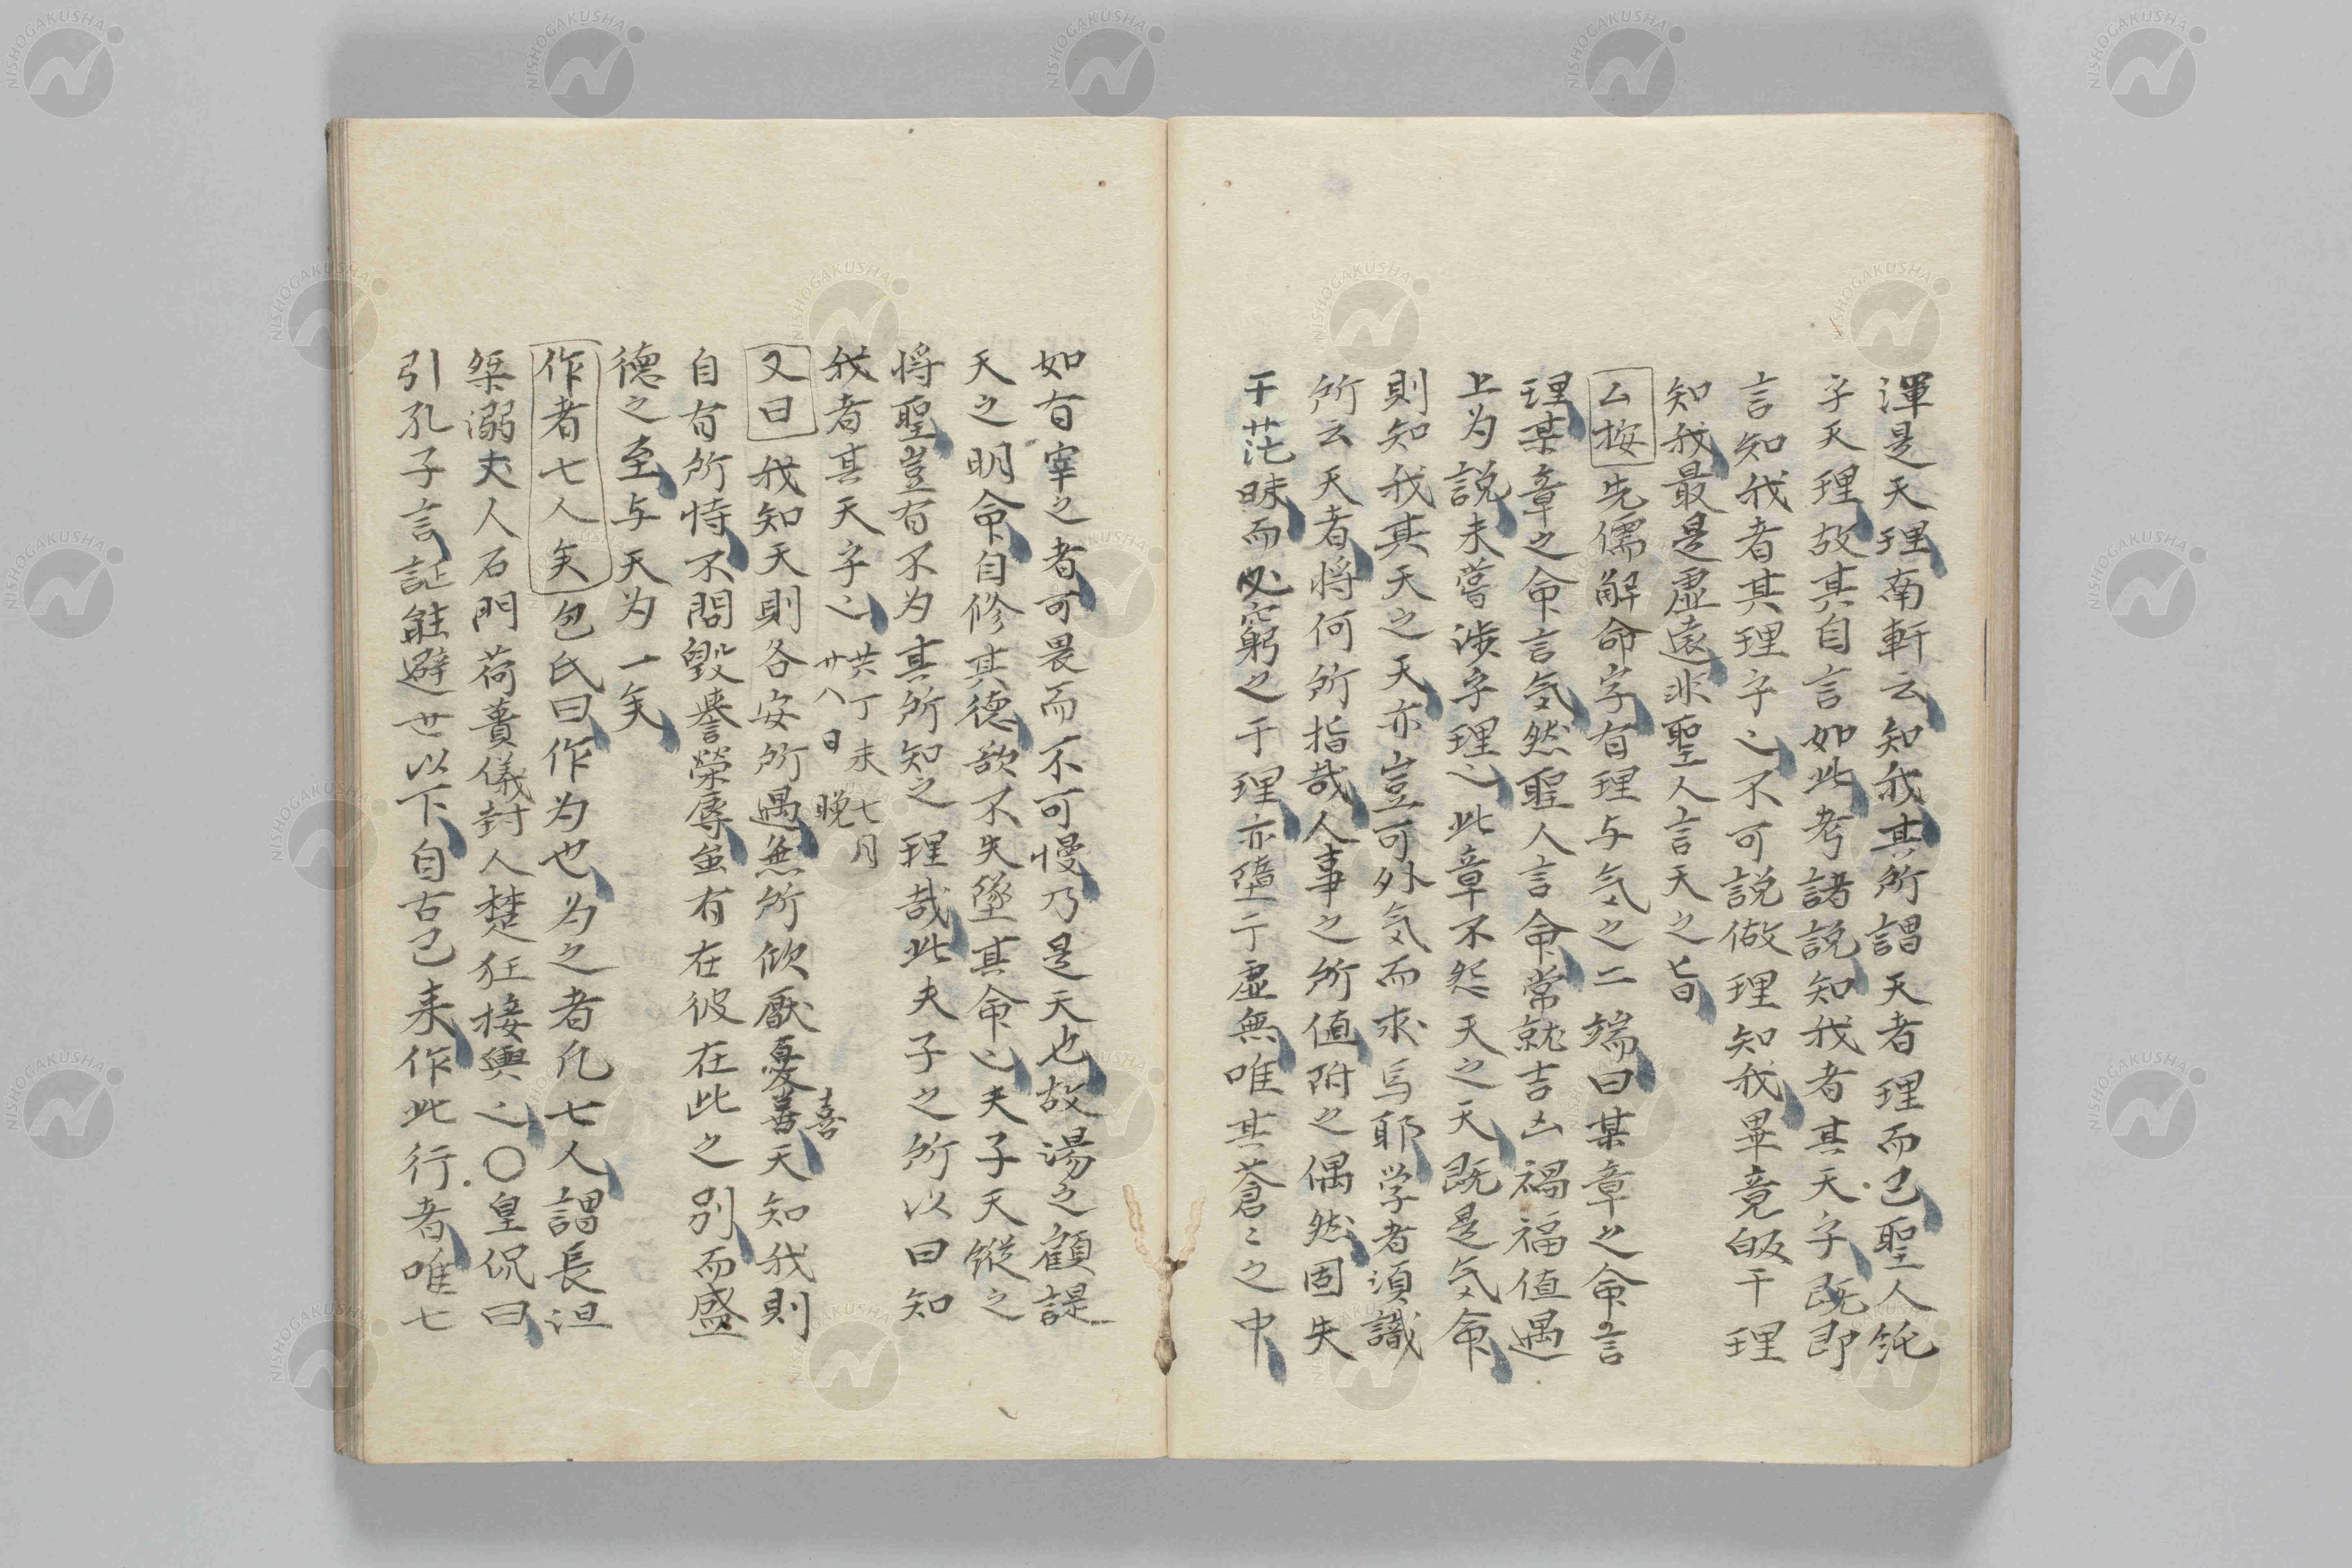 渾是天理南軒云知我其所謂天者理而已聖人純
乎天理故其自言如此考諸説知我者其天字既即
言知我者其理字之不可説做理知我畢竟皈于理
知我最是虚遠非聖人言天之旨
厶按先儒解命字有理与気之二端曰某章之命言
理某章之命言気然聖人言命常就吉凶禍福値遇
上为説未嘗渉乎理之此章不怨天之天既是気命
則知我其天之天亦豈可外気而求焉耶学者須識
所云天者将何所指哉人事之所値附之偶然固失
于茫昧而必窮之于理亦堕于虚無唯其蒼々之中
如有宰之者可畏而不可慢乃是天也故湯之顧諟
天之明命自修其徳欲不失墜其命之夫子天縦之
将聖豈有不为其所知之理哉此夫子之所以曰知
我者其天乎之 共丁未七月
廿八日晩
又曰我知天則各安所遇無所欣厭憂喜天知我則
喜
自有所恃不問毀誉栄辱虽有在彼在此之別而盛
徳之至与天为一矣
作者七人矣包氏曰作为也为之者凢七人謂長沮
桀溺丈人石門荷蕢儀封人楚狂接輿之〇皇侃曰
引孔子言証能避世以下自古已来作此行者唯七
NISHOGAKUSHA